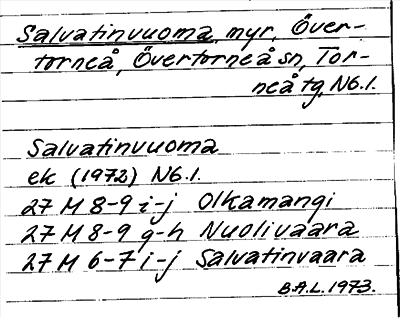 Salvatinvuoma, myr, Över-
torneå, Övertorneå sn, Tor-
neå tg, Nb.l.
Salvatinvuoma
ek (1972) Nb.l.
27 M 8-9 i-j Olkamangi
27 M 8-9 g-h Nuolivaara
27 M 6-7 i-j Salvatinvaara
B.A.L. 1973.